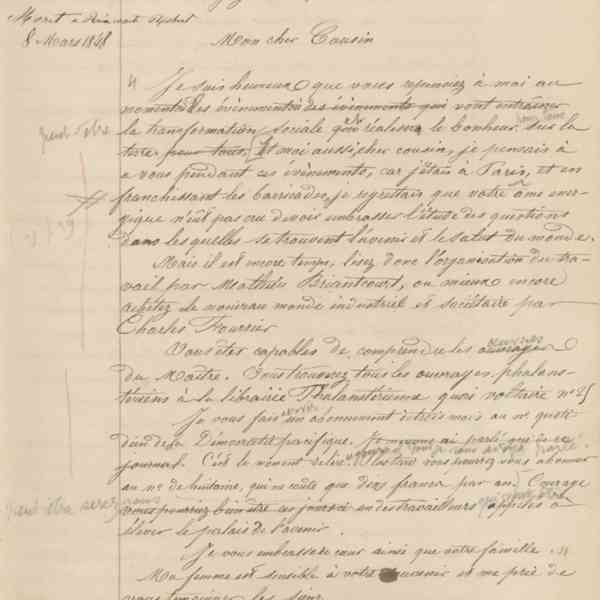 8 Mars 1848
Mon cher Cousin
Je suis heureux que vous rejouissiez à moi au
moment des évènements qui vont entraîner
peut être
la transformation sociale qui réalisera le bonheur sur la
terre pour tous. Et moi aussi, cher cousin, je pensais à
vous pendant ces évènements, car j'étais à Paris, et en
franchissant les barricades, je regrettais que votre âme éner-
gique n'eut pas cru devoir embrasser l'étude des questions
dans lesquelles se trouvent l'avenir et le salut du monde.
Mais il est encore temps, lisez donc l'organisation du tra-
vail par Mathieu Briancourt, ou mieux encore
achetez le nouveau monde industriel et sociétaire par
Charles Fourrier
Vous êtes capables de comprendre les ouvrages
œuvres
du Maître. Vous trouverez tous les ouvrages phalans-
tériens à la librairie Phalanstérienne quai voltaire nº 25
Je vous fais un abonnement de trois mois au nº quoti-
dien de la Démocratie pacifique. Je vous ai parlé que de ce
journal. C'est le moment de lire. Plus tard vous pourrez vous abonner
au nº de huitaine, qui ne coûte que francs par an. Courage
peut être serez vous
vous pourrez bien être un jour ces travailleurs appelés à
élever le palais de l'avenir.
Je vous embrasse de cœur ainsi que votre famille.
Ma femme est sensible à votre souvenir et me prie de
vous